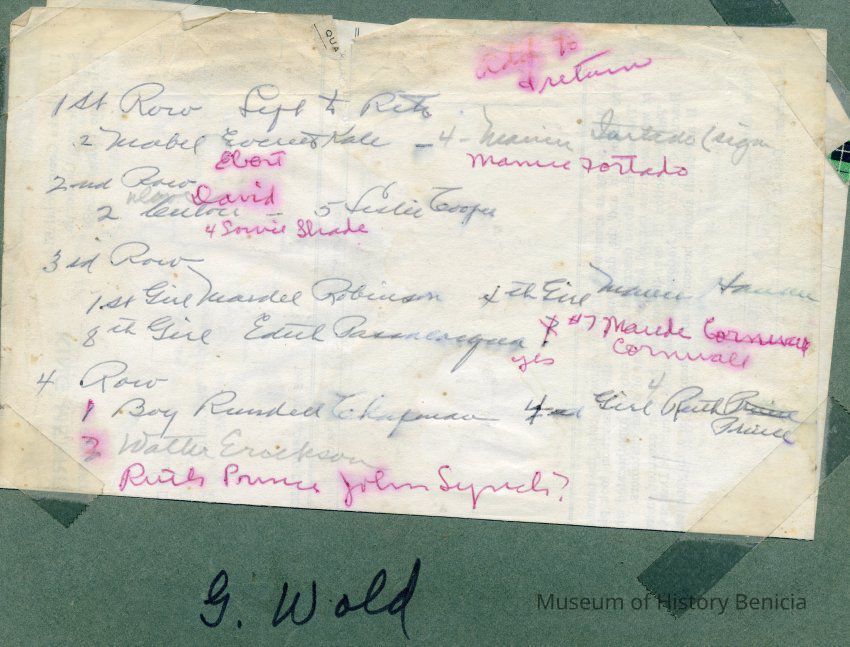 QUA
Add to
& return
1st Row Left to Rite
2 Mabel Everet Kale - 4 - Mamie Furtado (sign
Ebert Mamie Fortado
2nd Row
David
2 - 5 Leslie Cooper
4 Sowie Shade
3rd Row
1st Girl Mardell Robinson 4th Girl Mamie
8th Girl Edith Passalacqua ? #7 Maude Cornwall
yes Cornwall
4 Row 4
1 Boy Rundell Chapman 4 Girl Ruth Prince
Prince
3 Walter Erockson
Ruth Prince John Lynch?
G. Wold
Museum of History Benicia